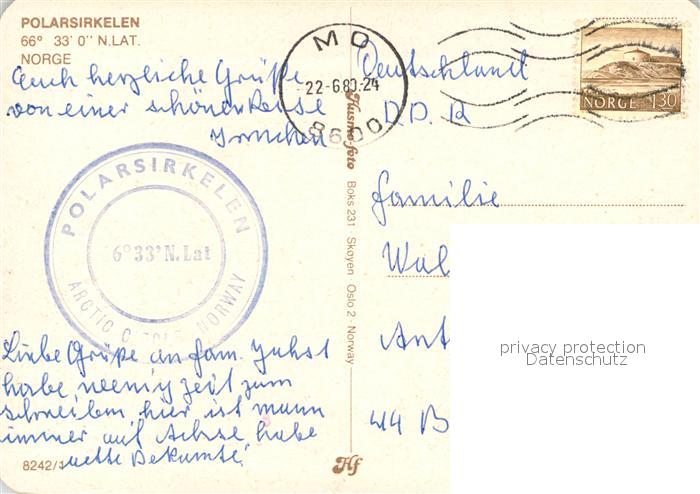 POLARSIRKELEN
66° 33' 0'' N.LAT.
NORGE
Euch herzliche Grüße
von einer schönen Reise
Irmchen
MO
22-6.80.24
8600
NORGE 130
Deutschland
D.D.R
Familie
Wal
Ant
44 B
POLARSIRKELEN
6°33'N.Lat
ARCTIC CIRCLE NORWAY
Liebe Grüße an Fam.
habe wenig Zeit zum
schreiben hier ist mann
immer auf Achse habe
nette Bekannte
8242/1
Husmo-foto Boks 231 · Skøyen Oslo 2 · Norway
Hf
privacy protection
Datenschutz